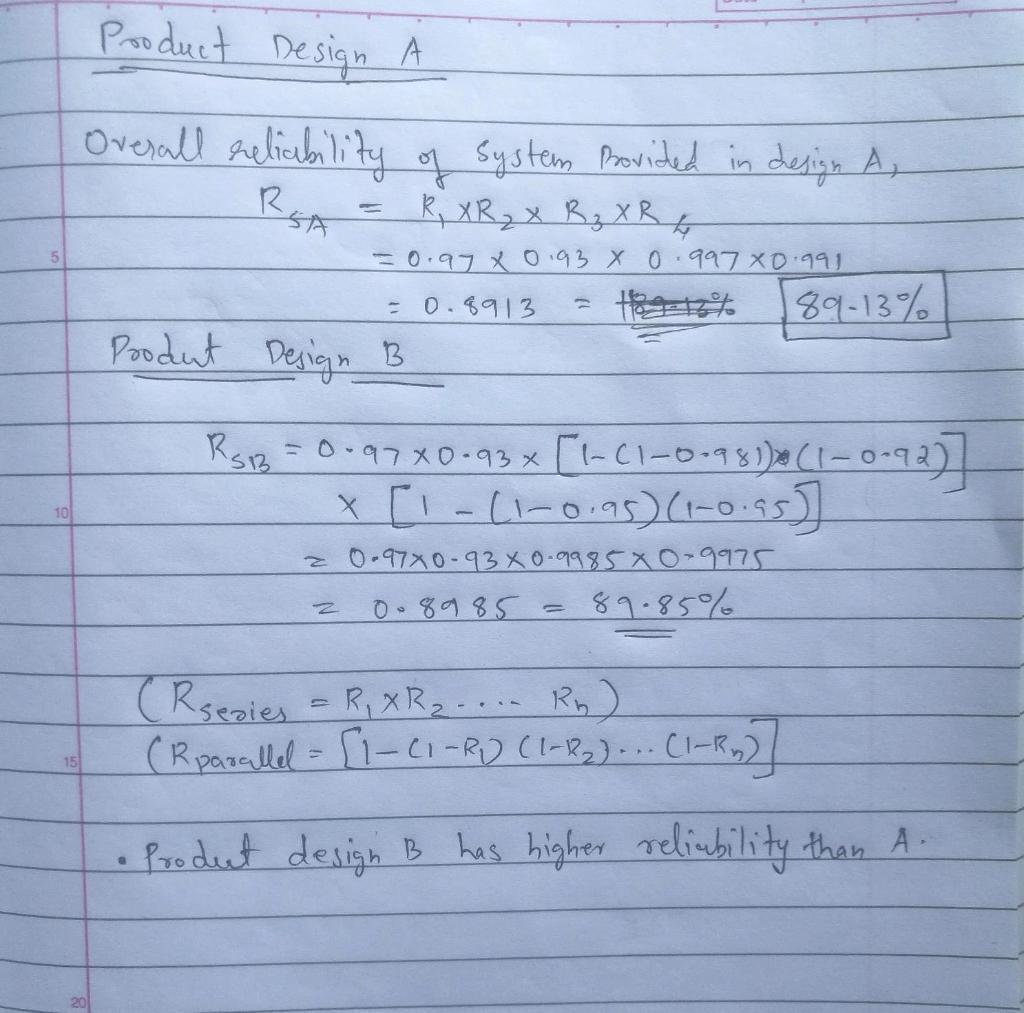 Product Design A
Overall reliability of system Provided in design A,
R_SA = R₁ X R₂ X R₃ X R₄
= 0.97 X 0.93 X 0.997 X 0.991
5
= 0.8913 = 89.13%
Produt Design B
R_SB = 0.97 X 0.93 X [1-(1-0.981)(1-0.92)]
X [1-(1-0.95)(1-0.95)]
10
= 0.97X0.93X0.9985X0.9975
= 0.8985 = 89.85%
(R series = R₁ X R₂ .... Rn)
(R parallel = [1-(1-R₁) (1-R₂)... (1-Rn)]
15
• Produt design B has higher reliability than A.
20